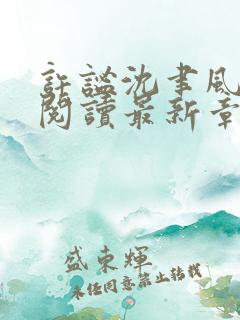 許謐沈聿風
閱讀最新章
盛東輝
未經同意禁止轉載